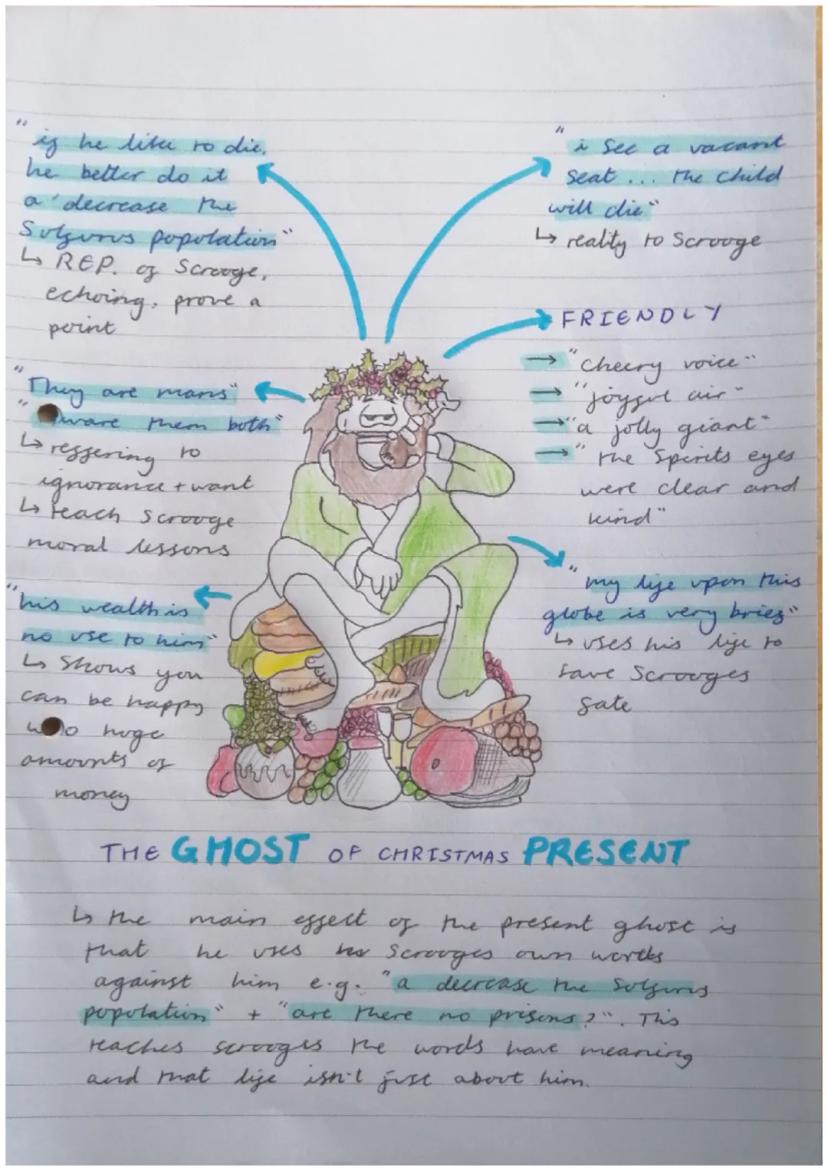 "if he like to die,
he better do it
a decrease the
Solfurus population"
↳ REP. of Scrooge,
echoing, prove a
point
"i see a vacant
seat ... the child
will die"
↳ reality to Scrooge
FRIENDLY
→ "cheery voice"
→ "joyful air"
→ "a jolly giant"
→ "the Spirits eyes
were clear and
kind"
"They are mans"
"ware them both"
↳ reffering to
ignorance + want
↳ teach Scrooge
moral lessons
"my life upon this
globe is very brief"
↳ uses his life to
save Scrooges
fate
"his wealth is
no use to him"
↳ Shows you
can be happy
w/o huge
amounts of
money
THE GHOST OF CHRISTMAS PRESENT
↳ the main effect of the present ghost is
that he uses Scrooges own words
against him e.g. "a decrease the Solfurus
population" + "are there no prisons?". This
teaches scrooges the words have meaning
and that life isn't just about him.